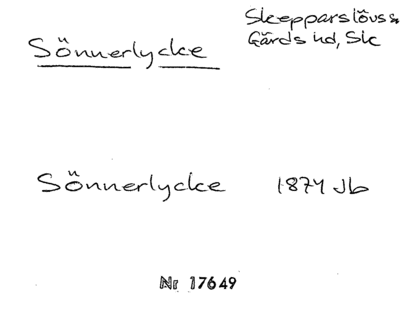 Skepparslövs sn
Gärds hd, Sk
Sönnerlycke
Sönnerlycke 1874 Jb
Nr 17649